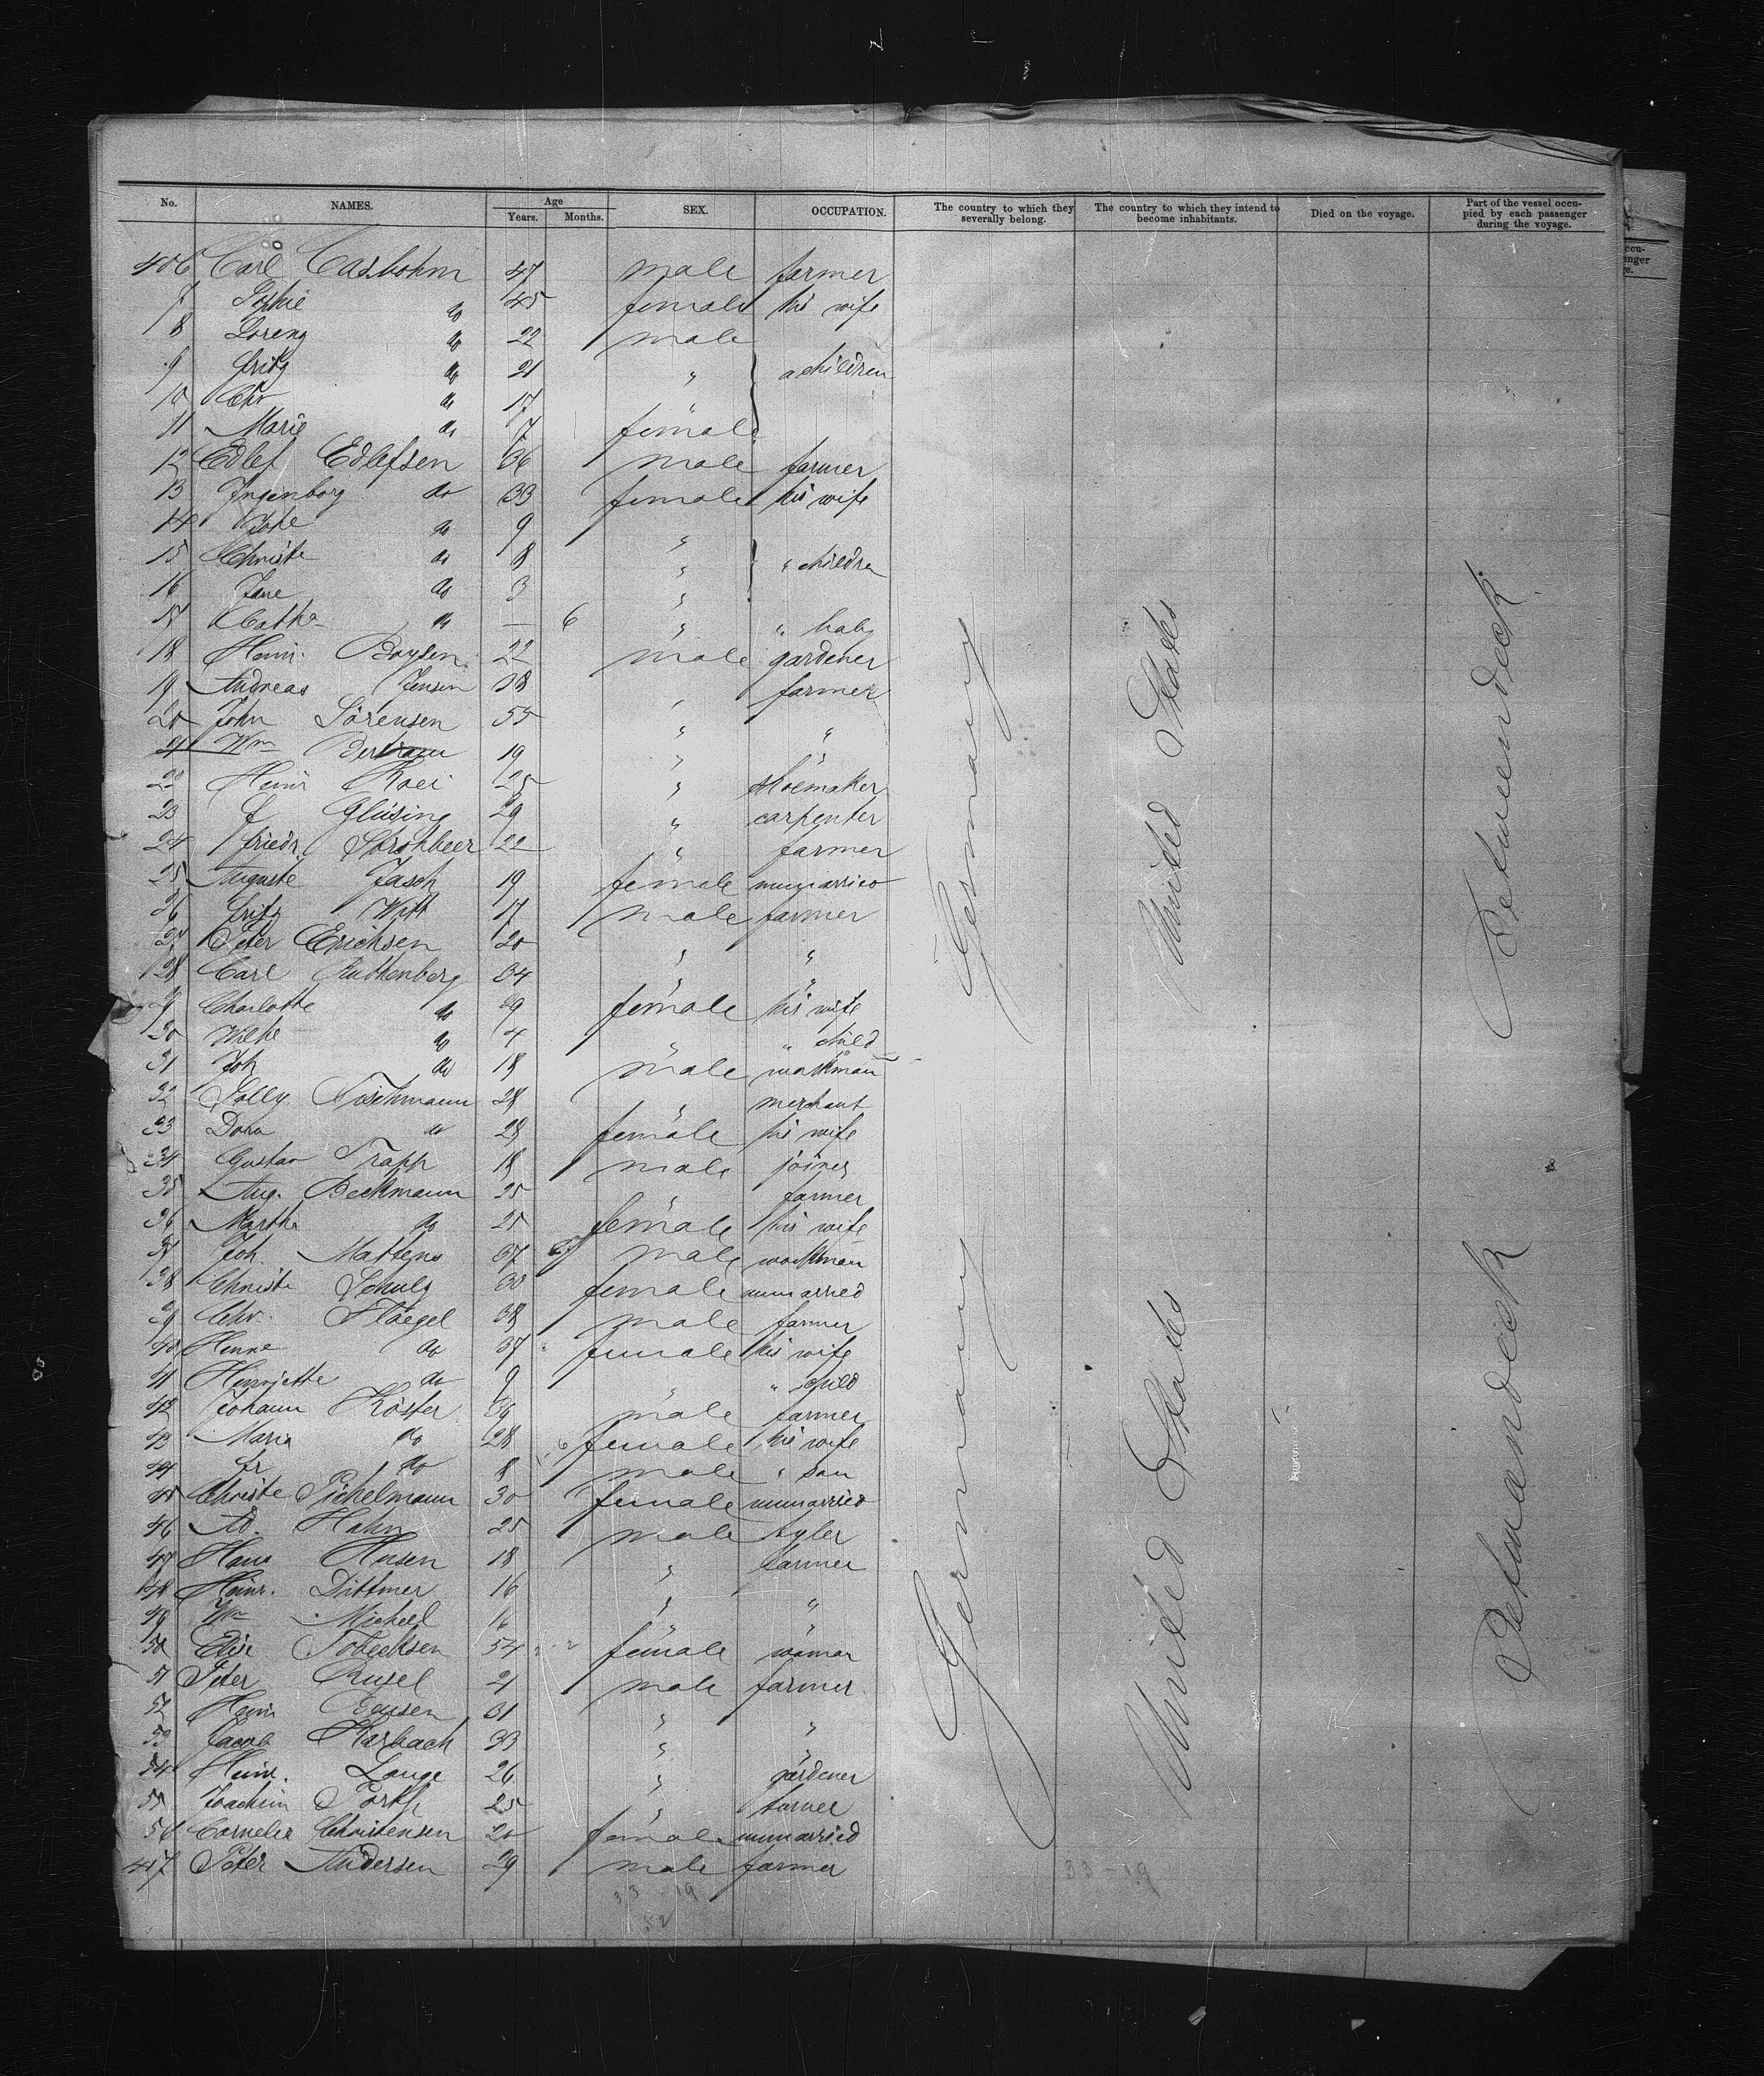 No. NAMES. Age Years. Months. SEX. OCCUPATION. The country to which they severally belong. The country to which they intend to become inhabitants. Died on the voyage. Part of the vessel occupied by each passenger during the voyage.
406 Carl Casbohm 47 male farmer
7 Sophie do 45 female his wife
8 Lorenz do 22 male
9 Fritz do 21 " children
10 Chr do 17 "
11 Marie do 7 female
12 Edlef Edlefsen 36 male farmer
13 Ingenborg do 33 female his wife
14 do 9 "
15 Christe do 8 " " children
16 Jane do 3 "
17 Cathe do — 6 " " baby
18 Heinr. Boysen 22 male gardener
19 Andreas Jensen 38 " farmer
20 John Sörensen 55 " "
21 Wm Bertram 19 " "
22 Heinr 25 " shoemaker
23 Glüsing 29 " carpenter
24 Friedr. Strohbeer 22 " farmer
25 Auguste Jasch 19 female unmarried
26 Fritz Witt 17 male farmer
27 Peter Erichsen 20 " "
28 Carl Ruthenberg 34 " "
29 Charlotte do 29 female his wife
30 Wilhe do 4 " " child
31 Joh do 18 male workman
32 Solly 28 " merchant
33 Dora do 28 female his wife
34 Gustav Trapp 18 male joiner
35 Aug. Beckmann 25 " farmer
36 Martha do 25 female his wife
37 Joh. Mattens 37 male workman
38 Christe Schulz 30 female unmarried
39 Chr. Floegel 38 male farmer
40 Henne do 37 female his wife
41 Henriette do 9 " " child
42 Johann Köster 39 male farmer
43 Maria do 28 female his wife
44 Fr do 8 male " son
45 Christe Pichelmann 30 female unmarried
46 Ad. Hahn 25 male tyler
47 Hans 18 " farmer
48 Heinr. Dittmer 16 " "
49 Wm Micheel 16 " "
50 Elise 54 female woman
51 Peter Rusel 21 male farmer
52 Heinr 31 " "
53 Jacob Harbach 33 " "
54 Heinr. Lange 26 " gardener
55 Joachim 25 "
56 Cornelia Christensen 20 female unmarried
457 Peter Andersen 29 male farmer
Germany United States
Germany United States
33 - 19
52
33 - 19